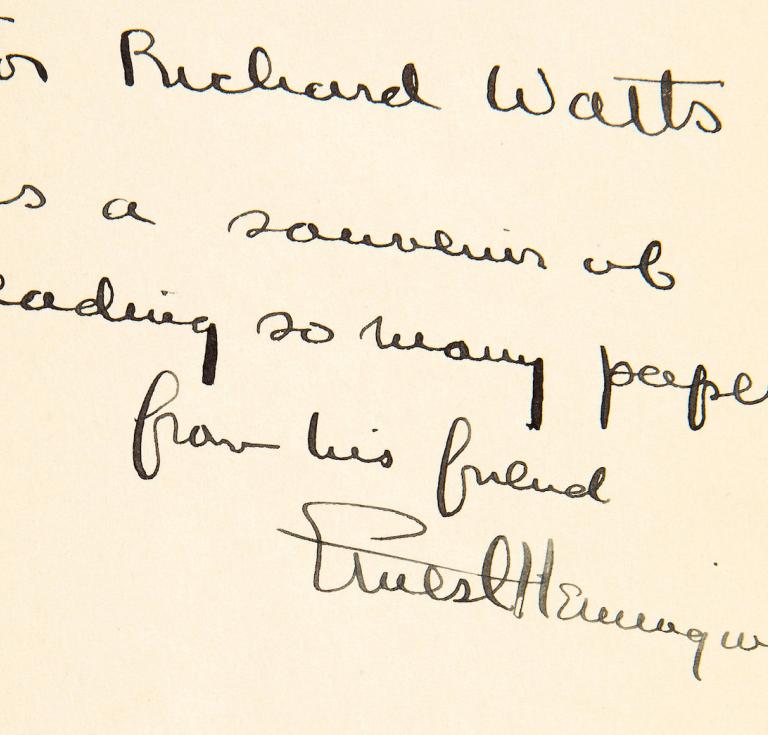 or Richard Watts
s a souvenir of
eading so many
from his friend
Ernest Hemingw